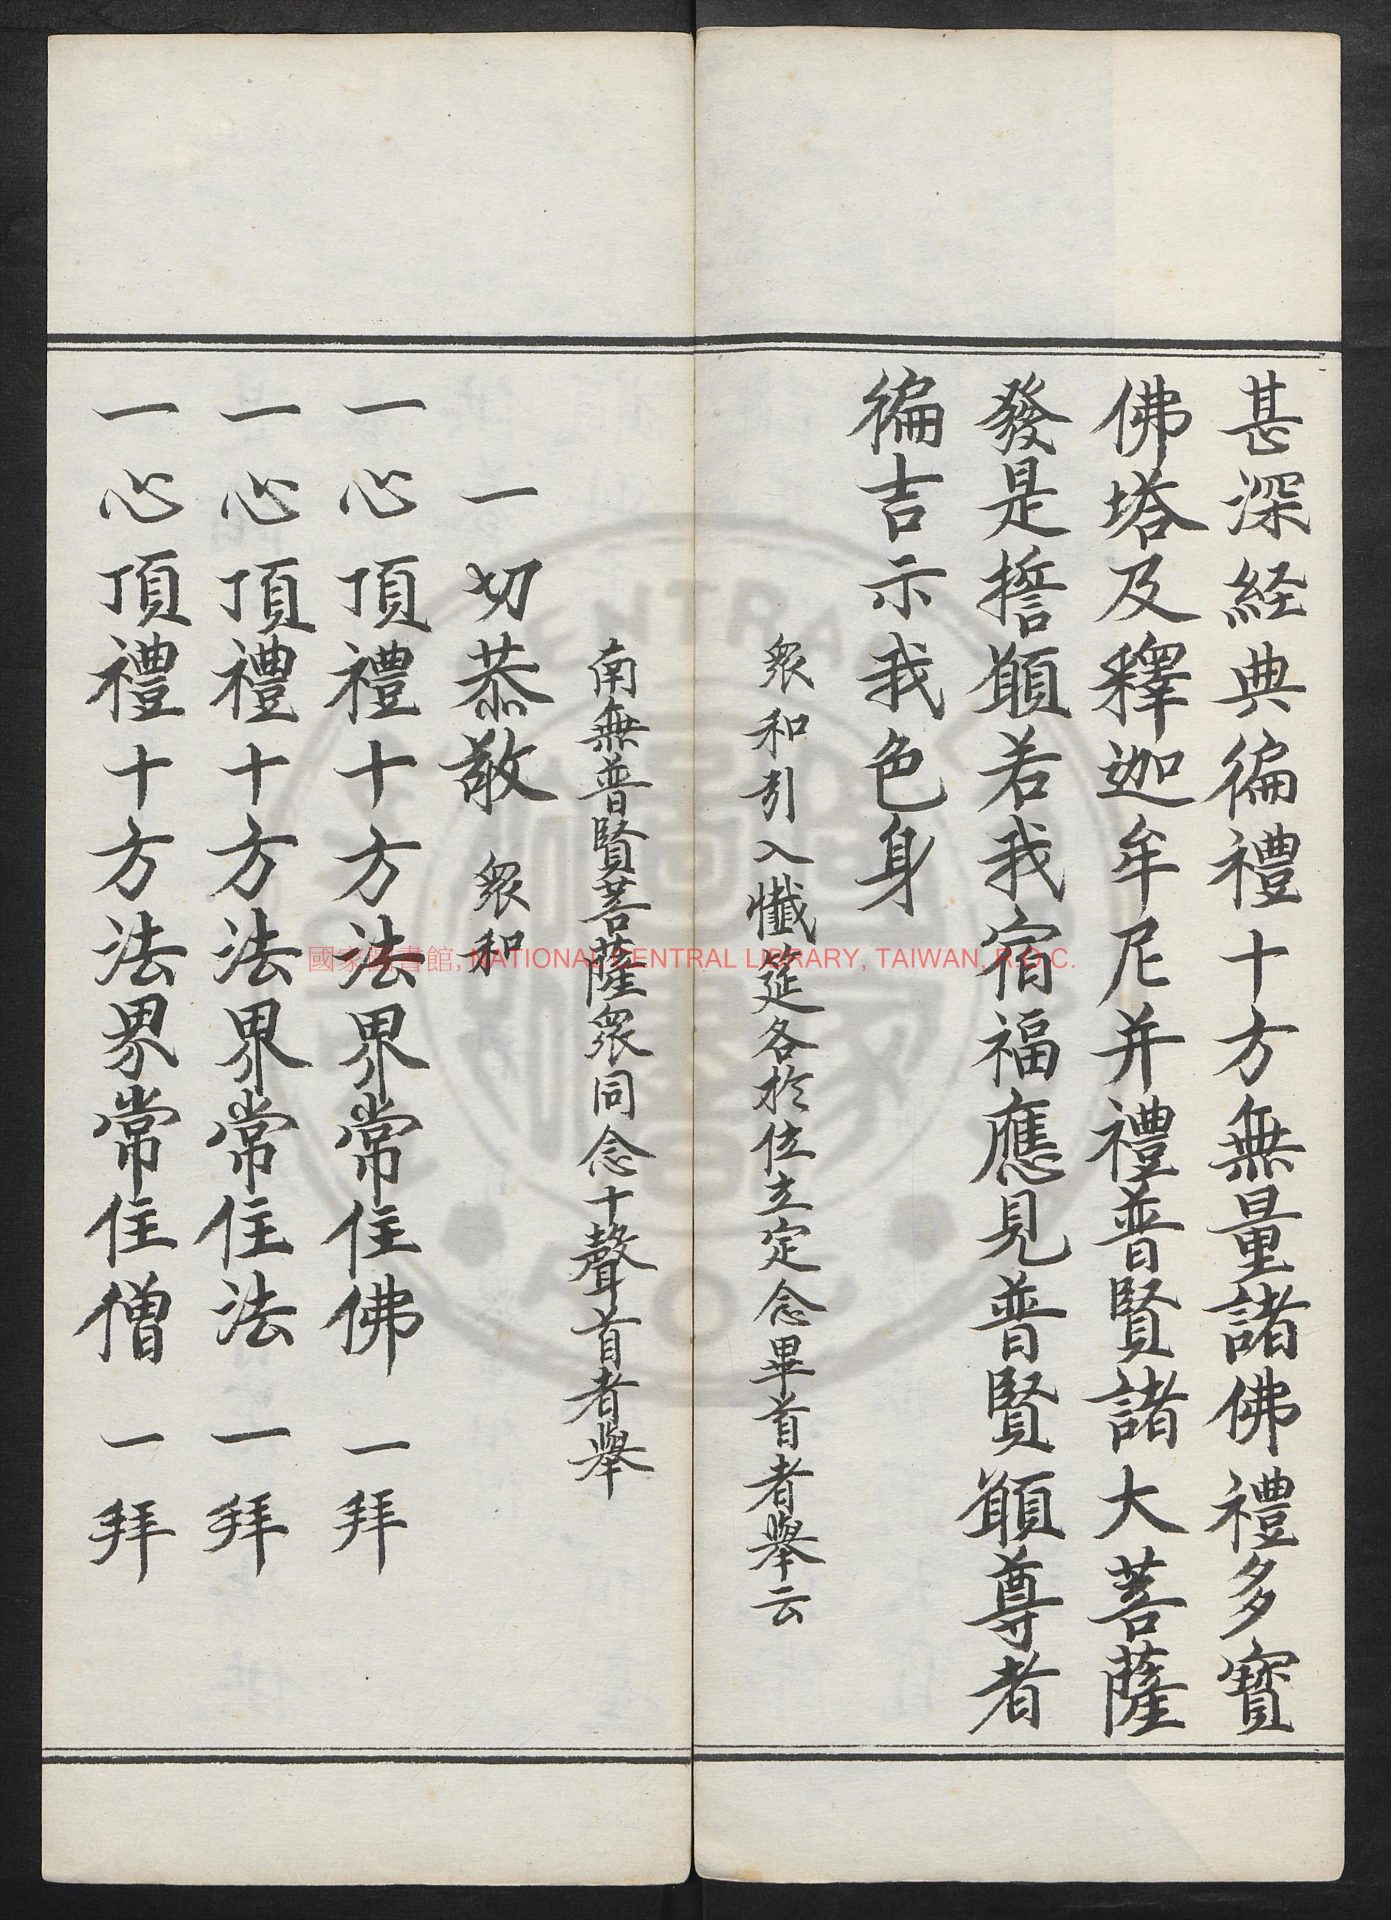 甚深経典徧禮十方無量諸佛禮多寶
佛塔及釋迦牟尼并禮普賢諸大菩薩
發是誓願若我宿福應見普賢願尊者
徧吉示我色身
衆和引入懺延各於位立定念畢首者舉云
南無普賢菩薩衆同念十聲首者舉
一切恭敬 衆和
一心頂禮十方法界常住佛 一拜
一心頂禮十方法界常住法 一拜
一心頂禮十方法界常住僧 一拜
國家圖書館, NATIONAL CENTRAL LIBRARY, TAIWAN, R.O.C.